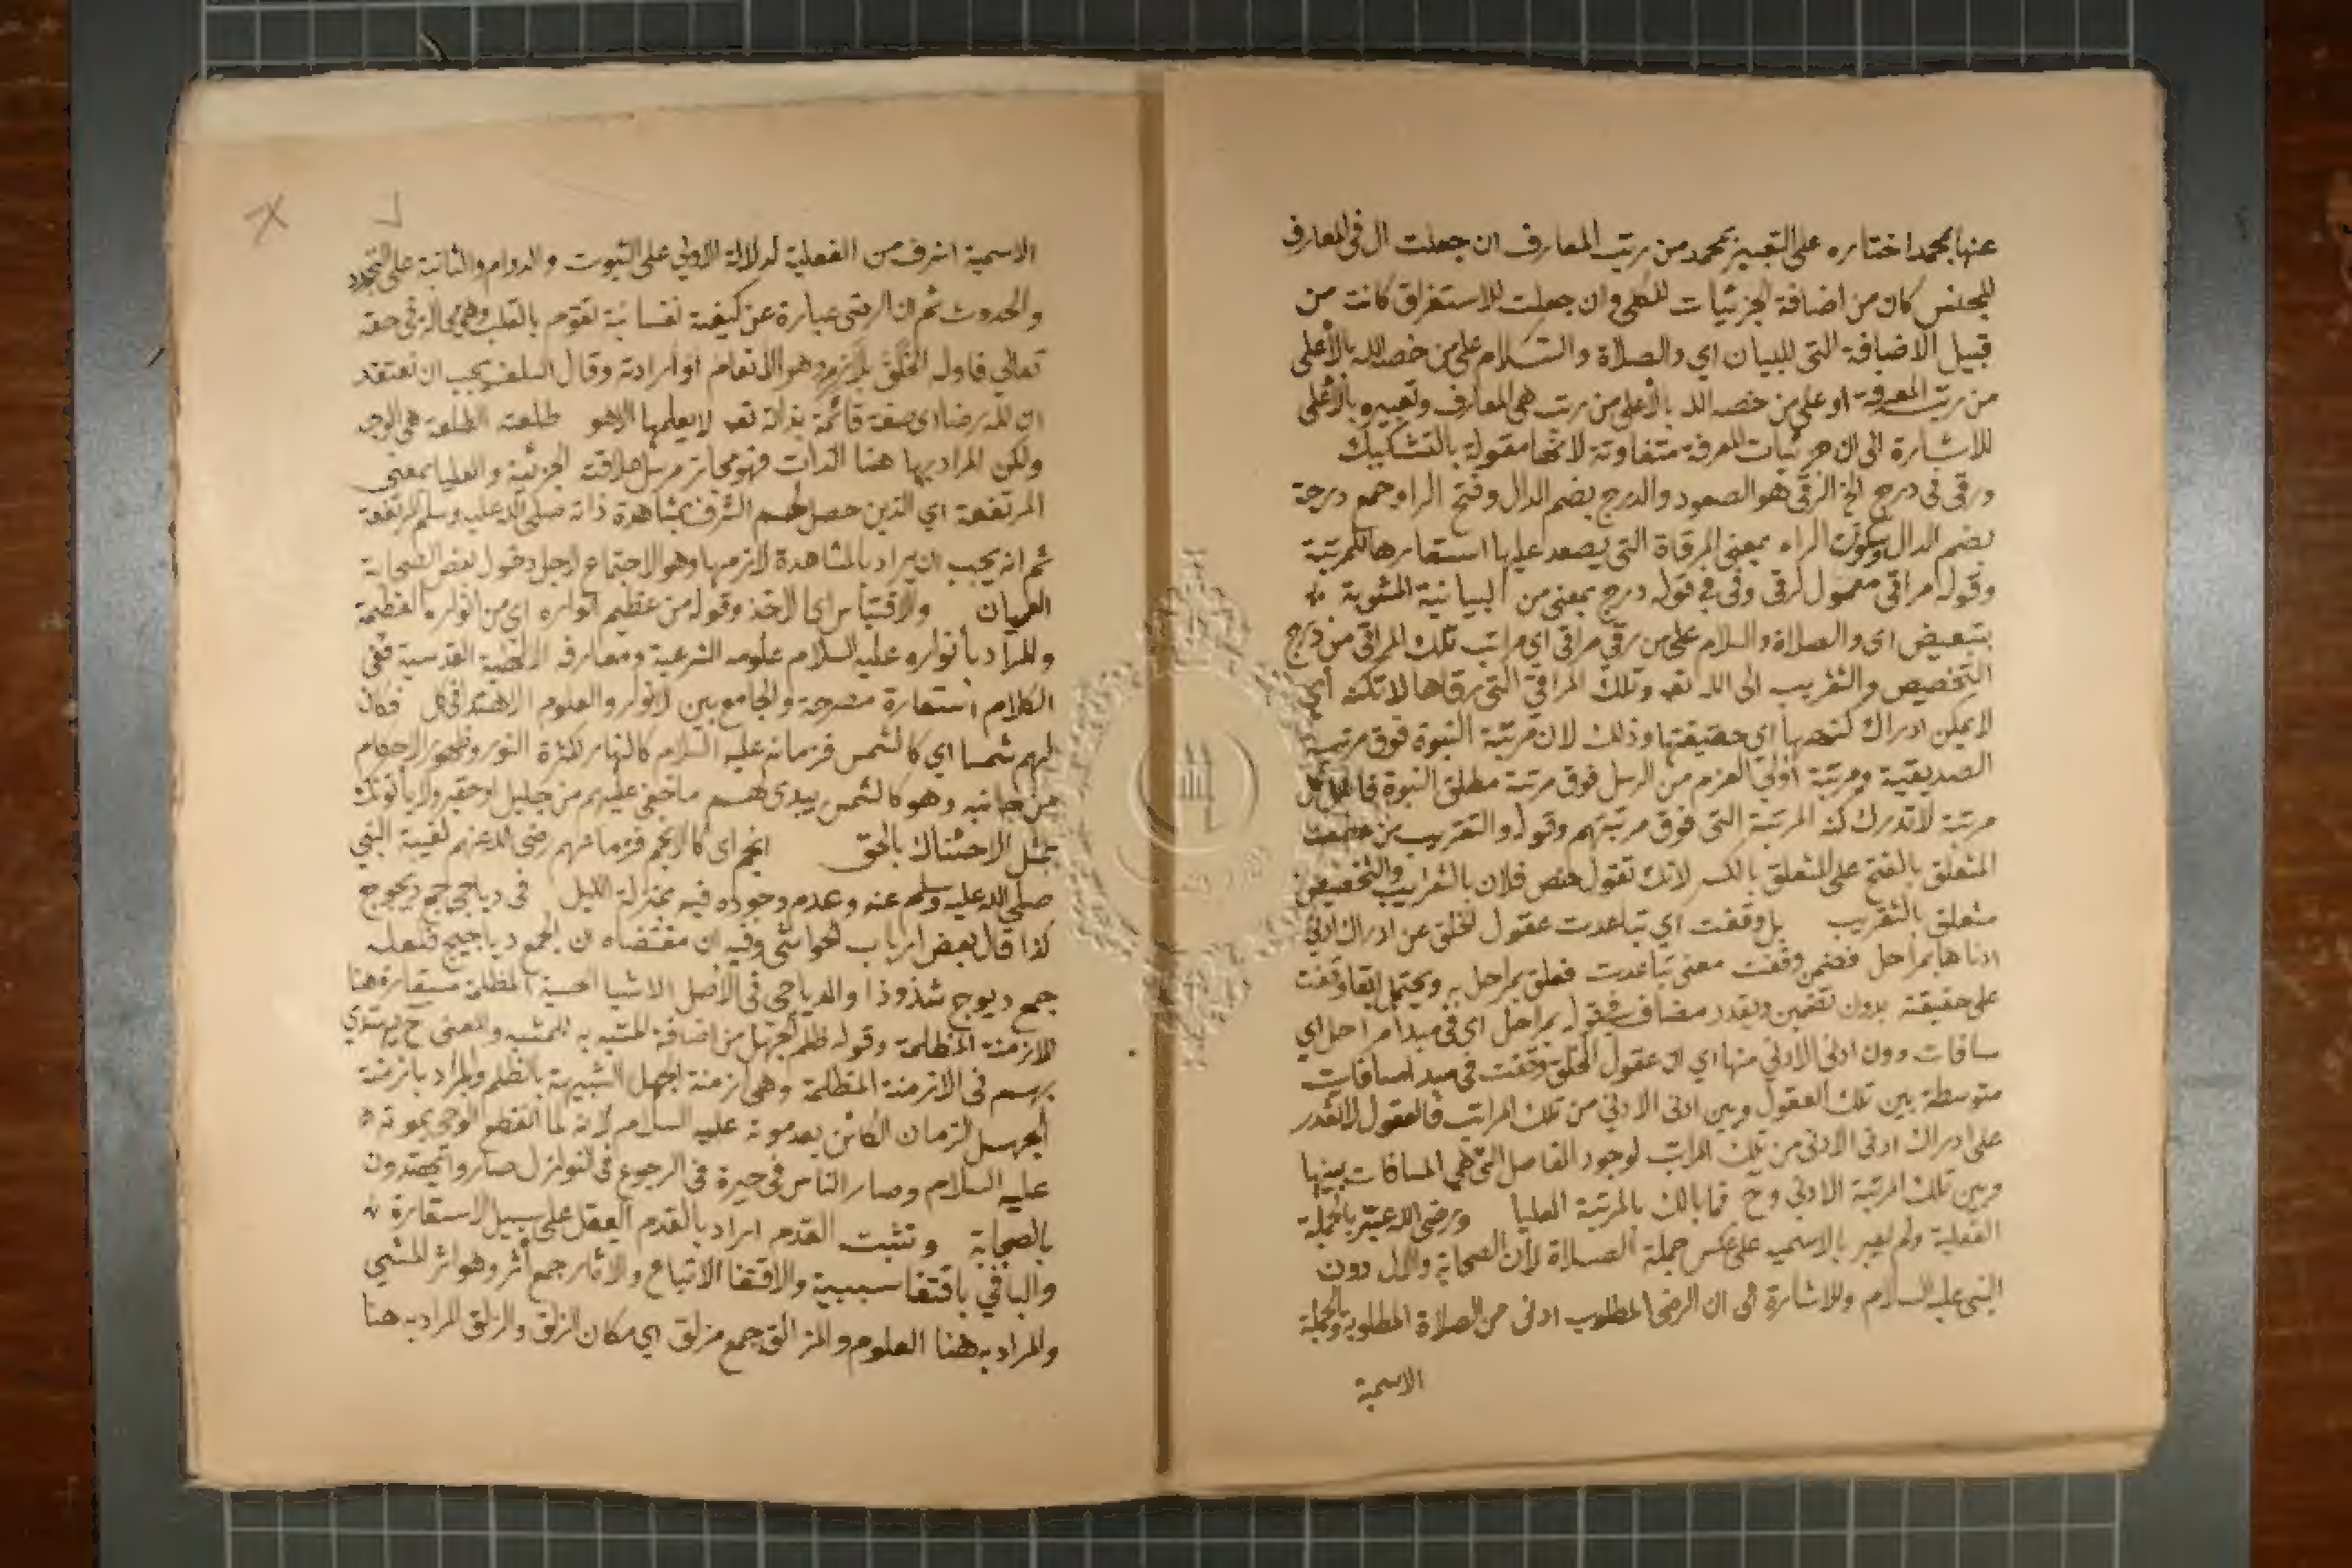 عنها بمحمد اختاره على التعبير بمحمد من رتب المعارف ان جعلت ال فى المعارف
للجنس كان من اضافة الجزئيات للكلى وان جعلت للاستغراق كانت من
قبيل الاضافة التى للبيان اي والصلاة والسلام على من خصه الله بالأعلى
من رتب المعرفة او على من خصه الله بالأعلى من رتب هى المعارف وتعبيره بالأعلى
للاشارة الى ان جزئيات المعرفة متفاوتة لانها مقولة بالتشكيك
ورقى فى درج الخ الرقى هو الصعود والدرج بضم الدال وفتح الراء جمع درجة
بضم الدال وسكون الراء بمعنى المرقاة التى يصعد عليها استعارها للمرتبة
وقوله مراقي معمول لرقى وفى في قوله درج بمعنى من البيانية المشوبة
بتبعيض اى والصلاة والسلام على من رقي مراقي اى مراتب تلك المراقى من درج
التخصيص والتقريب الى الله تعـ وتلك المراقي التى رقاها لا تكتنه أي
لا يمكن ادراك كنهها اى حقيقتها وذلك لان مرتبة النبوة فوق مرتبـة
الصديقية ومرتبة أولي العزم من الرسل فوق مرتبة مطلق النبوة فاهل كل
مرتبة لا تدرك كنه المرتبة التى فوق مرتبتهم وقوله والتقريب من
المتعلق بالفتح على المتعلق بالكسر لانك تقول خص فلان بالتقريب والتخصيص
متعلق بالتقريب بل وقفت اي تباعدت عقول الخلق عن ادراك ادنى
ادناها بمراحل فضمن وقفت معنى تباعدت فعلق بمراحل به ويحتمل ابقاء وقفت
على حقيقته بدون تضمين ويقدر مضاف فى قوله بمراحل اى فى مبدأ مراحل اى
مسافات دون ادنى الادنى منها اي ان عقول الخلق وقفت فى مبدا مسافات
متوسطة بين تلك العقول وبين ادنى الادنى من تلك المراتب فالعقول لا تقدر
على ادراك ادنى الادنى من تلك المراتب لوجود الفاصل التى هي المسافات بينها
وبين تلك المرتبة الادنى وح فما بالك بالمرتبة العليا ورضى الله عبّر بالجملة
الفعلية ولم يعبر بالاسمية على عكس جملة الصلاة لأن الصحابة والال دون
النبى عليه السلام وللاشارة الى ان الرضى المطلوب ادنى من الصلاة المطلوبة والجملة
الاسمية
الاسمية اشرف من الفعلية لدلالة الاولى على الثبوت والدوام والثانية على التجدد
والحدوث ثم ان الرضى عبارة عن كيفية نفسانية تقوم بالقلب وهى محالة فى حقه
تعالى فاوله الخلق بلازمه وهو الانعام او ارادته وقال السلف يجب ان نعتقد
ان لله رضا اى صفة قائمة بذاته تعـ لا يعلمها الا هو طلعته الطلعة هى الوجه
ولكن المراد بها هنا الذات فهو مجاز مرسل علاقته الجزئية والعليا بمعنى
المرتفعة اي الذين حصل لهم الشرف بمشاهدة ذاته صلى الله عليه وسلم المرتفعة
ثم انه يجب ان يراد بالمشاهدة لازمها وهو الاجتماع لاجل دخول بعض الصحابة
العميان والاقتباس اى الاخذ وقوله من عظيم انواره اي من انواره العظيمة
والمراد بأنواره عليه السلام علومه الشرعية ومعارفه القدسية ففى
الكلام استعارة مصرحة والجامع بين الانوار والعلوم الاهتدا فى كل فكان
لهم شمسا اي كالشمس فزمانه عليه السلام كالنهار لكثرة النور وظهور الاحكام
من جانبه وهو كالشمس يبدى لهـم ما خفى عليهم من جليل او حقير ولا يأتونك
بمثل الا جئناك بالحق انجم اى كالانجم فزمانهم رضى الله عنهم لغيبة النبي
صلي الله عليه وسلم عنه وعدم وجوده فيه بمنزلة الليل فى دياجى جمع ديجوج
كذا قال بعض ارباب الحواشى وفيه ان مقتضاه ان يجمع دياجيج فلعله
جمع ديوج شذوذا والدياجى فى الأصل الاشيا الحسية المظلمة مستعارة هنا
للازمنة المظلمة وقوله ظلم الجهل من اضافة المشبه به للمشبه والمعنى ح يهتدي
بهم فى الازمنة المظلمة وهى ازمنة الجهل الشبيهة بالظلم والمراد بازمنة
الجهل الزمان الكائن بعد موته عليه السلام لانه لما انقطع الوحي بموته
عليه السلام وصار الناس فى حيرة فى الرجوع فى النوازل صاروا يهتدون
بالصحابة وتثبت القدم اراد بالقدم العقل على سبيل الاستعارة
والبا في باقتفا سببية والاقتفا الاتباع والاثار جمع أثر وهو اثر المشي
والمراد به هنا العلوم والمزالق جمع مزلق اي مكان الزلق والزلق المراد به هنا